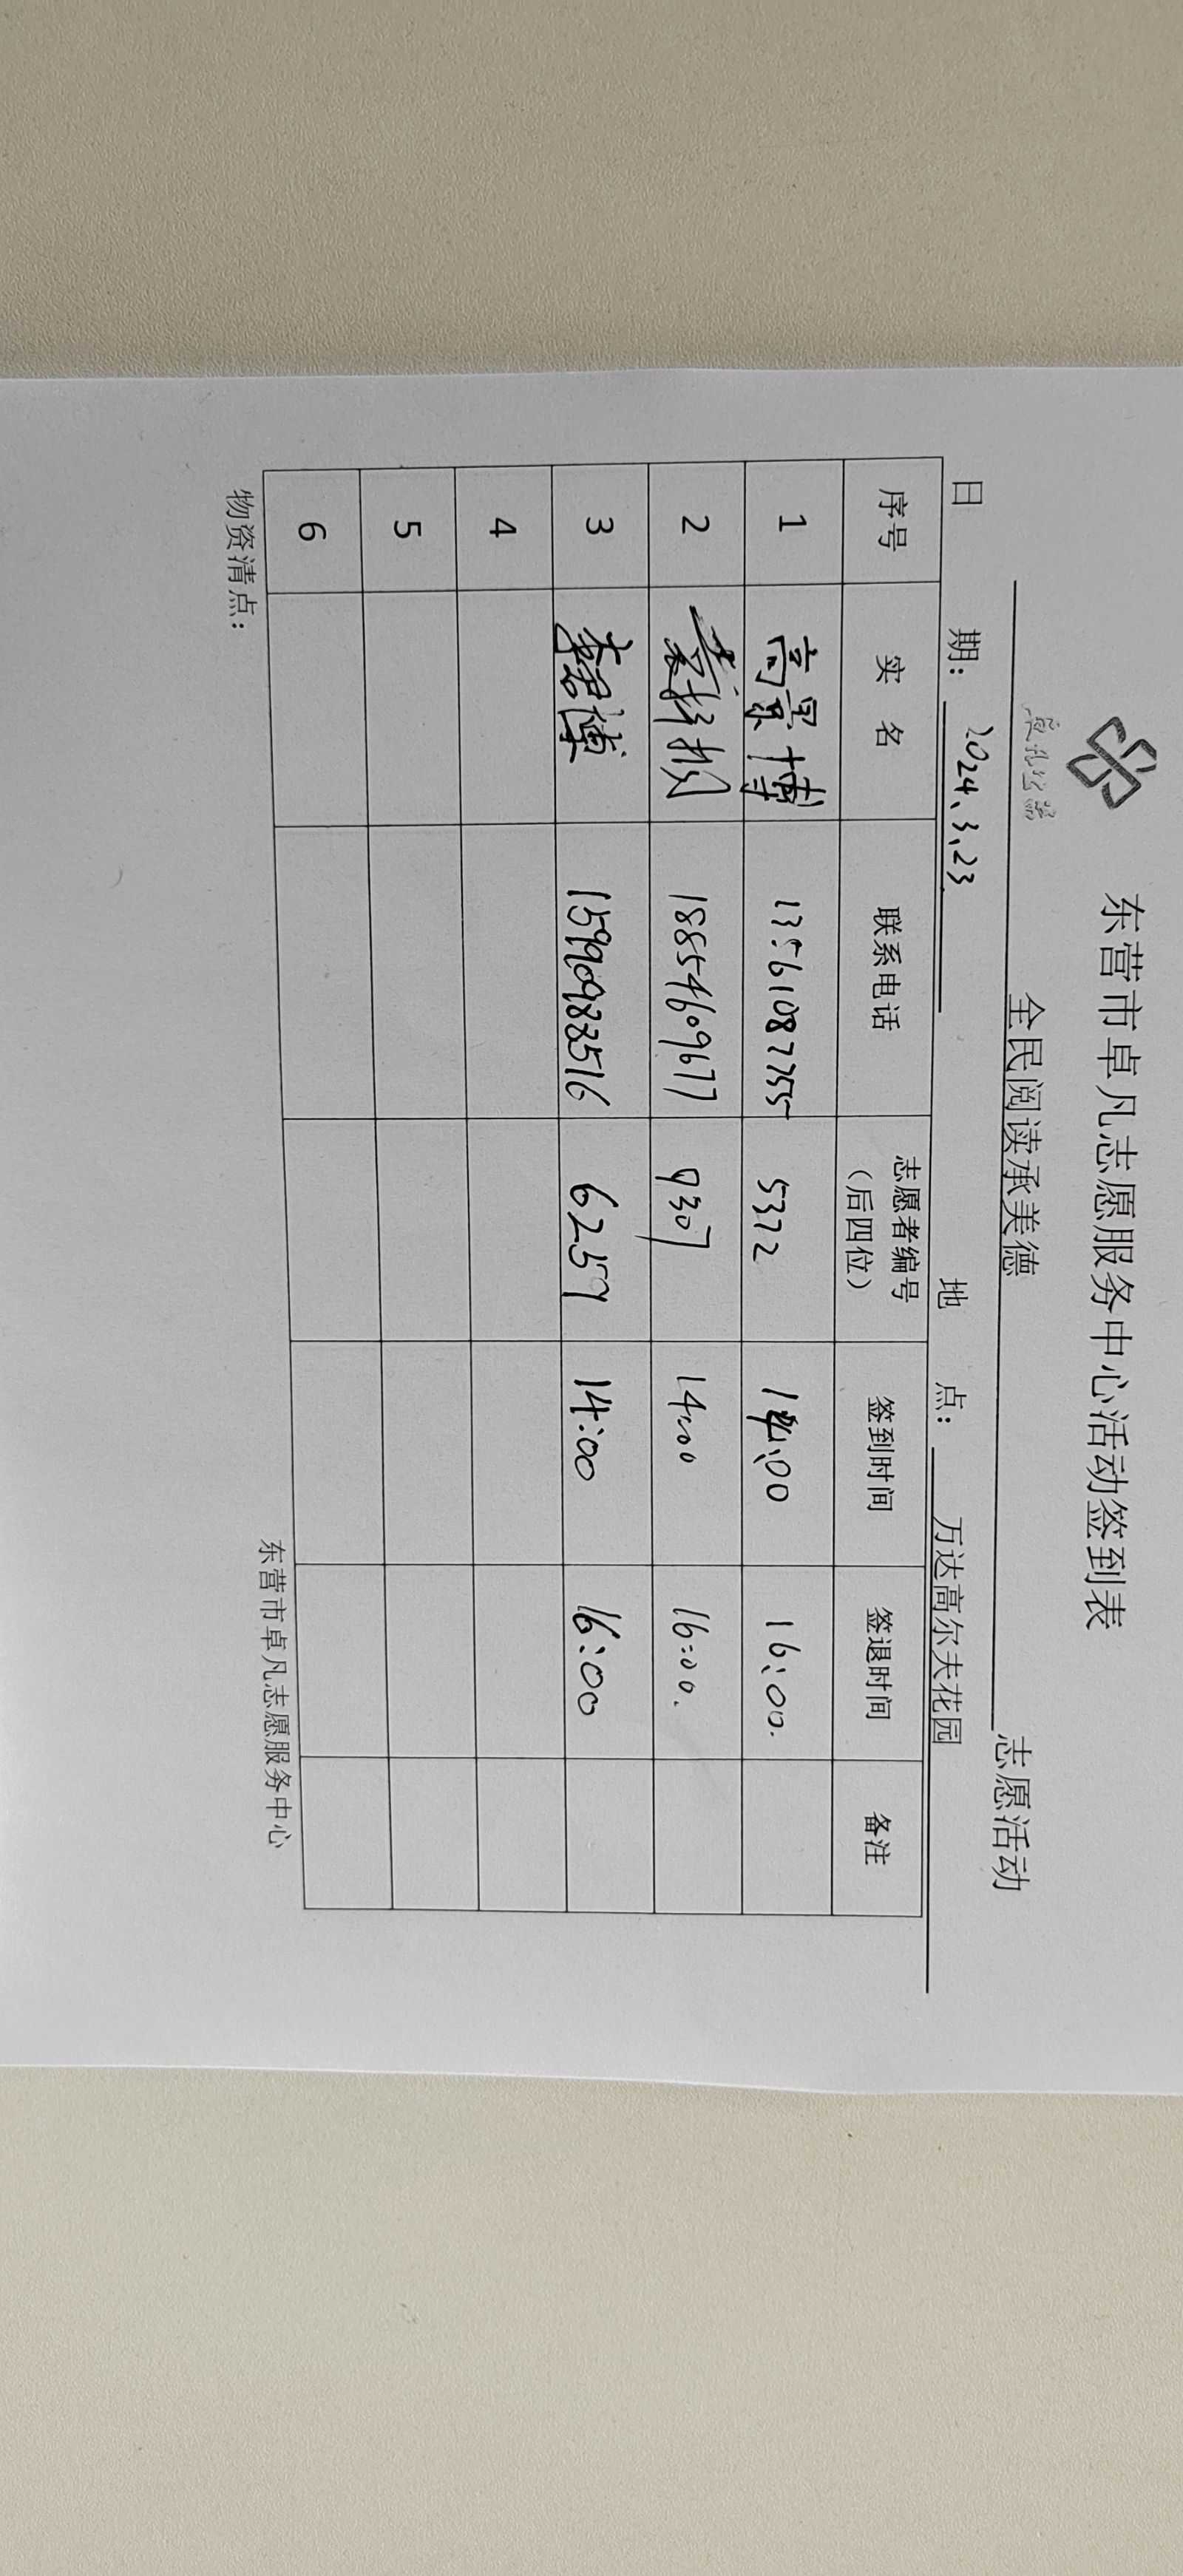 东营市卓凡志愿服务中心活动签到表
卓凡公益
全民阅读承美德 志愿活动
日 期: 2024.3.23 地 点: 万达高尔夫花园
序号 实 名 联系电话 志愿者编号（后四位） 签到时间 签退时间 备注
1 高景博 13561087255 5372 14:00 16:00.
2 18854609677 9307 14:00 16:00.
3 博 15990983516 6257 14:00 16:00
4
5
6
物资清点:
东营市卓凡志愿服务中心